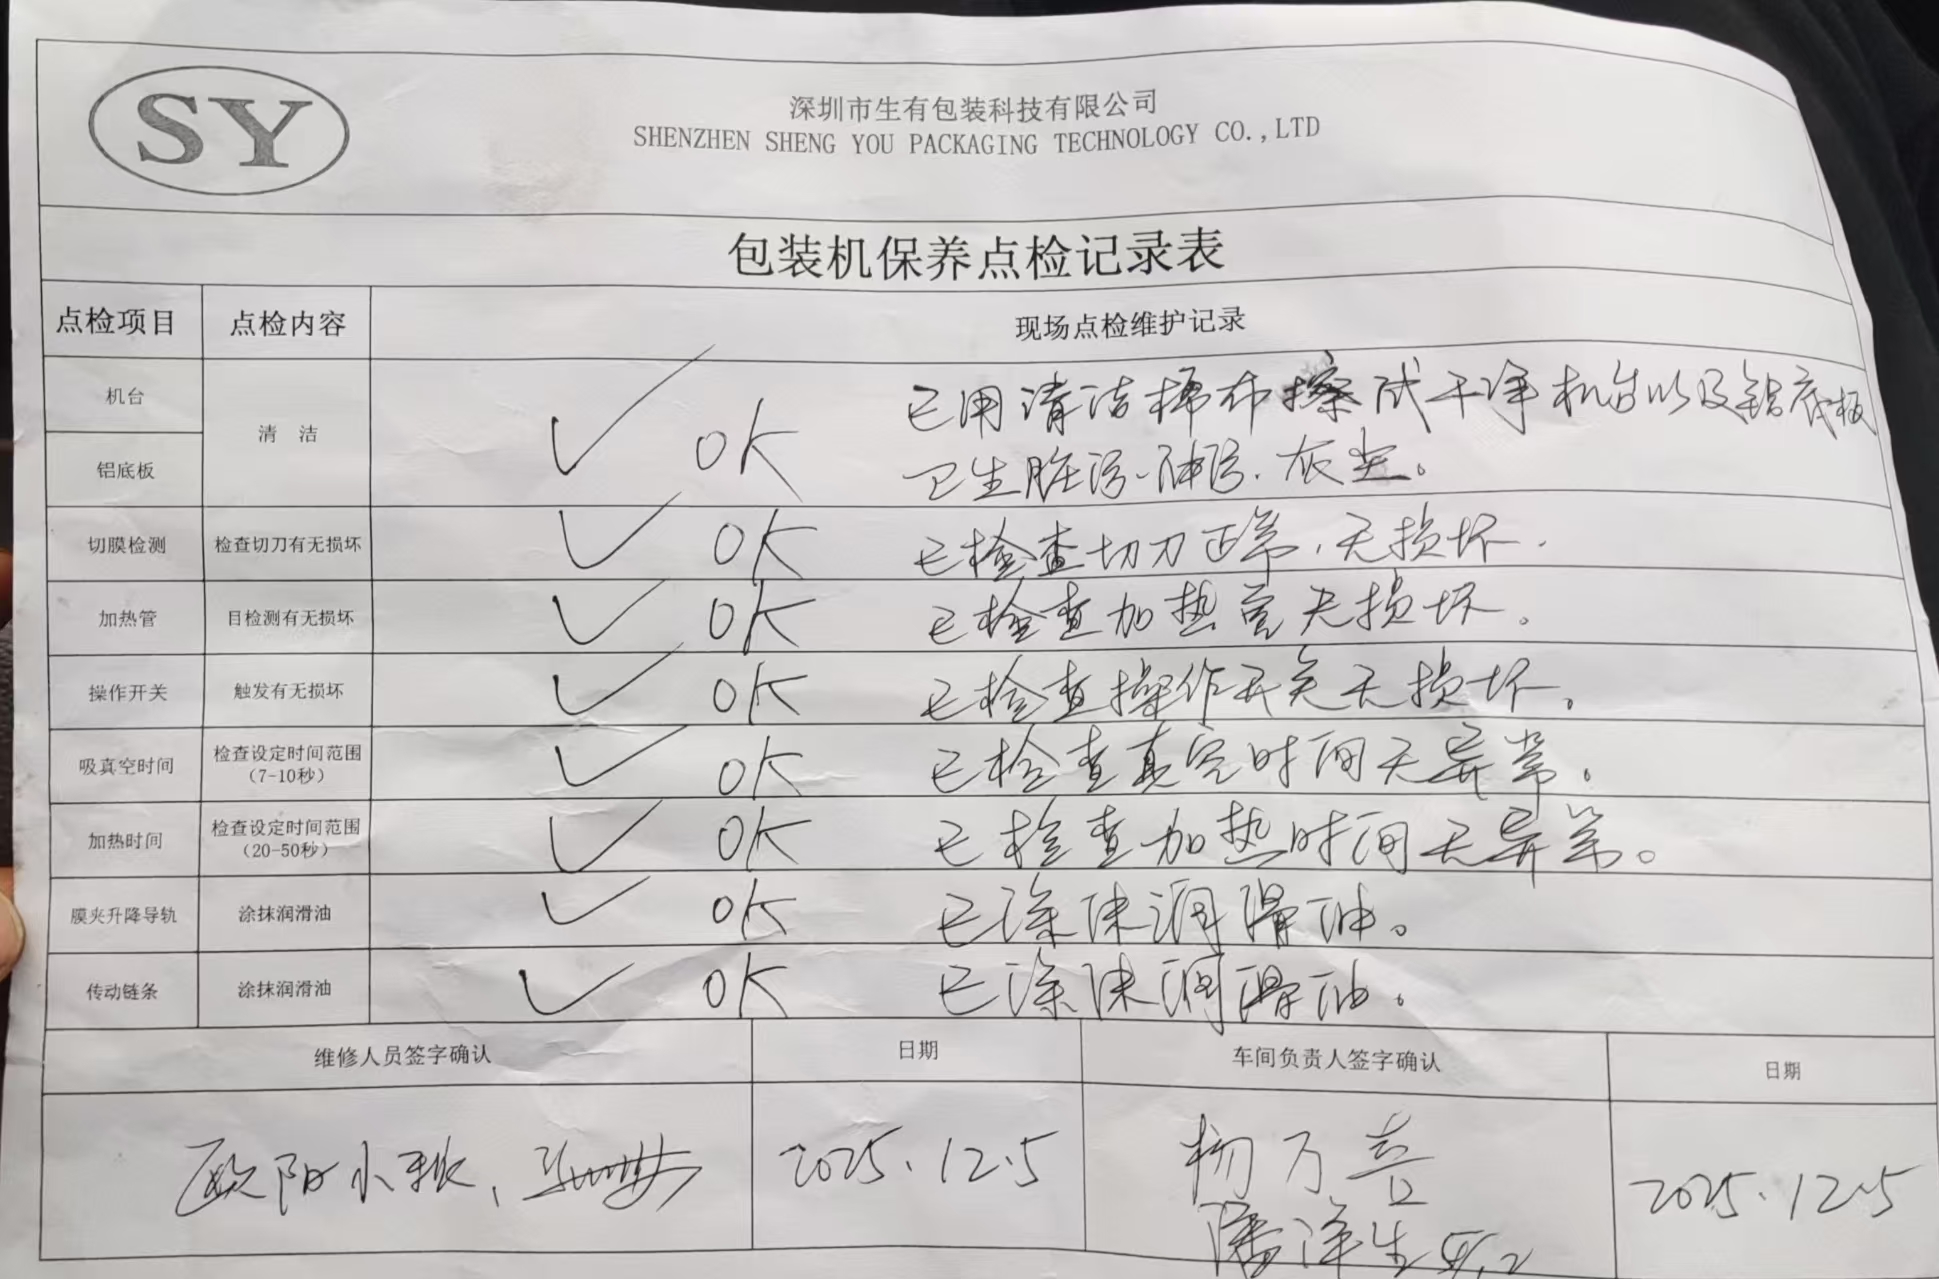 SY
深圳市生有包装科技有限公司
SHENZHEN SHENG YOU PACKAGING TECHNOLOGY CO.,LTD
包装机保养点检记录表
点检项目 点检内容 现场点检维护记录
机台 清 洁 ✓ OK 已用清洁棉布擦试干净机台以及铝底板
铝底板 卫生脏污、油污、灰尘。
切膜检测 检查切刀有无损坏 ✓ OK 已检查切刀正常,无损坏.
加热管 目检测有无损坏 ✓ OK 已检查加热管无损坏。
操作开关 触发有无损坏 ✓ OK 已检查操作开关无损坏。
吸真空时间 检查设定时间范围 ✓ OK 已检查真空时间无异常。
(7-10秒)
加热时间 检查设定时间范围 ✓ OK 已检查加热时间无异常。
(20-50秒)
膜夹升降导轨 涂抹润滑油 ✓ OK 已涂抹润滑油。
传动链条 涂抹润滑油 ✓ OK 已涂抹润滑油。
维修人员签字确认 日期 车间负责人签字确认 日期
欧阳小秋、 2025.12.5 杨万喜 2025.12.5
潘洋生